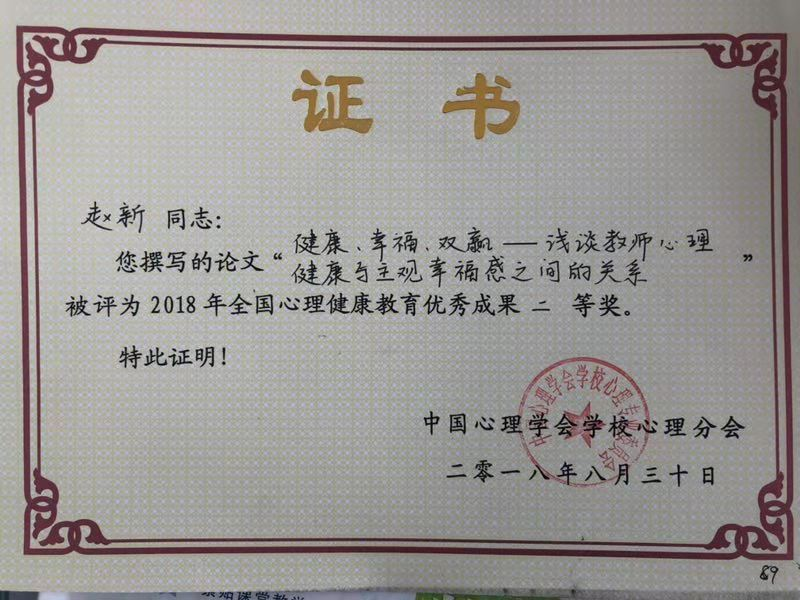 证书
赵新 同志：
您撰写的论文“健康、幸福、双赢——浅谈教师心理
健康与主观幸福感之间的关系”
被评为2018年全国心理健康教育优秀成果 二 等奖。
特此证明！
中国心理学会学校心理分会
二零一八年八月三十日
89